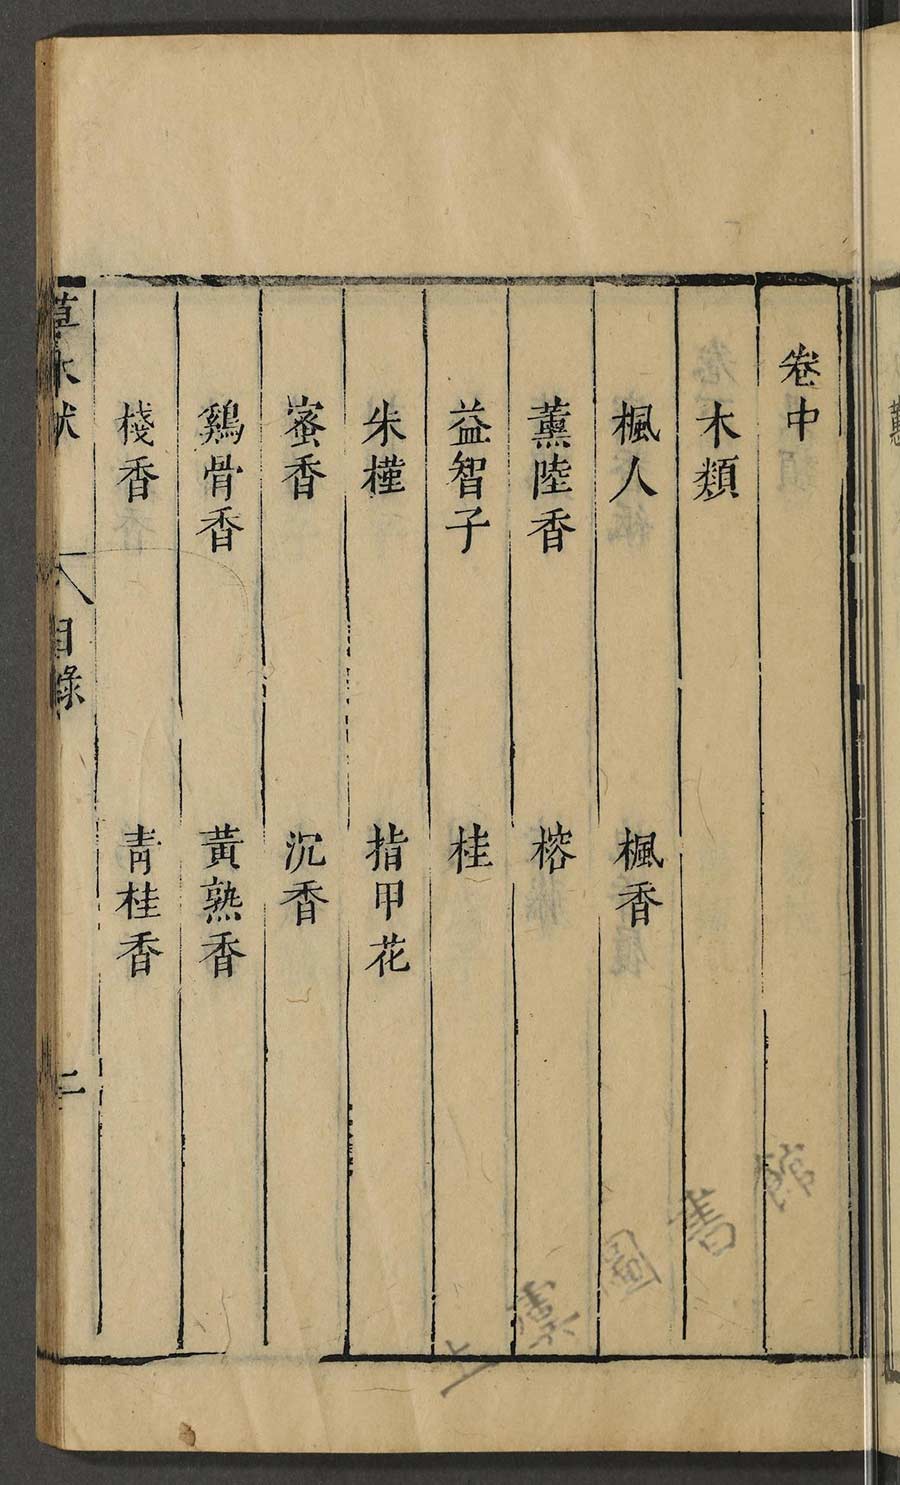 卷中
木類
楓人 楓香
薰陸香 榕
益智子 桂
朱槿 指甲花
蜜香 沉香
鷄骨香 黃熟香
棧香 青桂香
草木狀 目錄 二
上虞圖書館